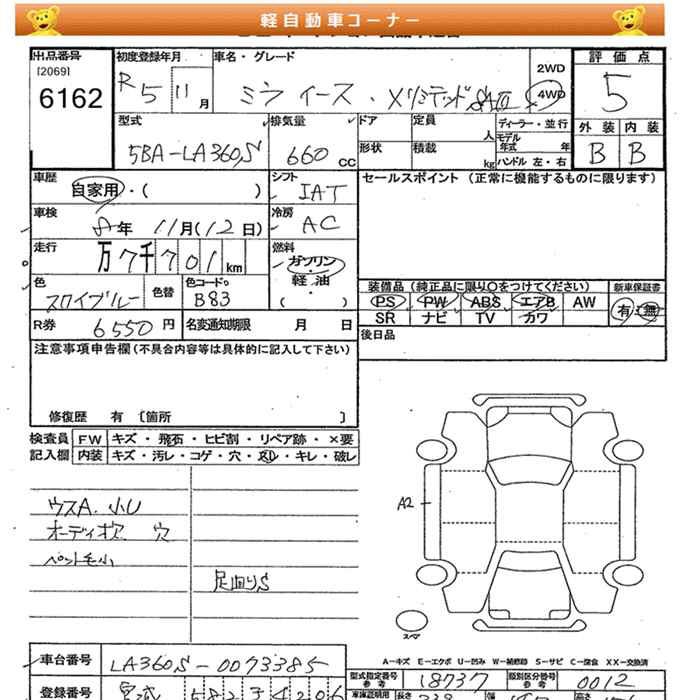 軽自動車コーナー
出品番号
[2069]
6162
初度登録年月
R5 11月
車名・グレード
ミライース・XリミテッドSAⅢ
2WD
4WD
評価点
5
外装 内装
B B
型式
5BA-LA360S
排気量
660 cc
ドア 定員 人
形状 積載 kg
ディーラー・並行
モデル年式 年
ハンドル 左・右
車歴
自家用・( )
シフト
IAT
セールスポイント (正常に機能するものに限ります)
車検
8年 11月(12日)
冷房
AC
走行
万7千701km
燃料
ガソリン・軽油
( )
色
スカイブルー
色替
色コードNo
B83
装備品(純正品に限り○をつけてください)
PS PW ABS エアB AW
SR ナビ TV カワ
新車保証書
有・無
R券
6550円
名変通知期限 月 日
後日品
注意事項申告欄(不具合内容等は具体的に記入して下さい)
修復歴 有 〔箇所 〕
検査員 FW キズ・飛石・ヒビ割・リペア跡・×要
記入欄 内装 キズ・汚レ・コゲ・穴・スレ・キレ・破レ
ウスA.小U
オーディオ 穴
ペット毛小
足回りS
A2
スペア
A-キズ E-エクボ U-凹み W-補修跡 S-サビ C-腐食 XX-交換済
車台番号
LA360S-0073385
型式指定番号
参考
18737
類別区分番号
参考
0012
登録番号
車庫証明用
長さ
幅
高さ